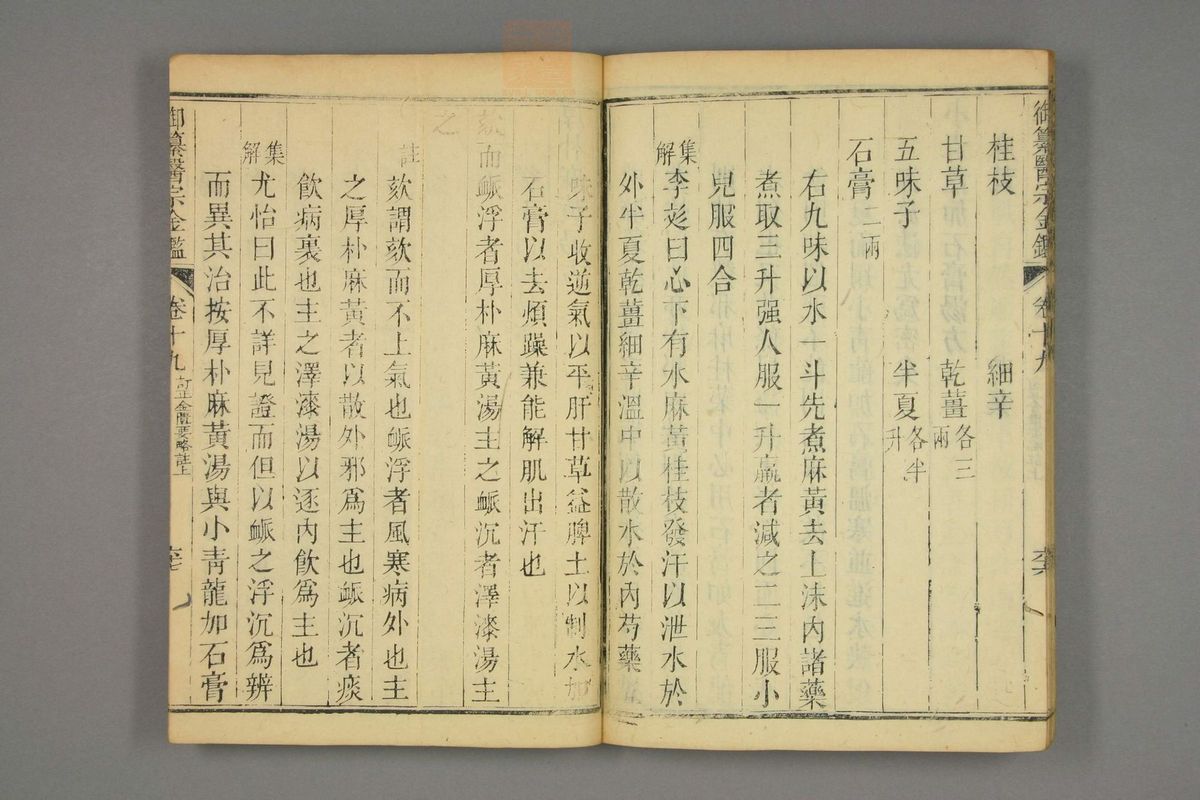 御纂醫宗金鑑 卷十九
桂枝 細辛
甘草 乾薑各三兩
五味子 半夏各半升
石膏二兩
右九味以水一斗先煮麻黃去上沫內諸藥
煮取三升强人服一升羸者減之二三服小
兒服四合
集解
李彣曰心下有水麻黃桂枝發汗以泄水於
外半夏乾薑細辛溫中以散水於內芍藥
味子收逆氣以平肝甘草益脾土以制水加
石膏以去煩躁兼能解肌出汗也
欬而脈浮者厚朴麻黃湯主之脈沉者澤漆湯主
之
註
欬謂欬而不上氣也脈浮者風寒病外也主
之厚朴麻黃者以散外邪爲主也脈沉者痰
飮病裏也主之澤漆湯以逐內飮爲主也
集解
尤怡曰此不詳見證而但以脈之浮沉爲辨
而異其治按厚朴麻黃湯與小靑龍加石膏
御纂醫宗金鑑 卷十九 訂正金匱要略註上